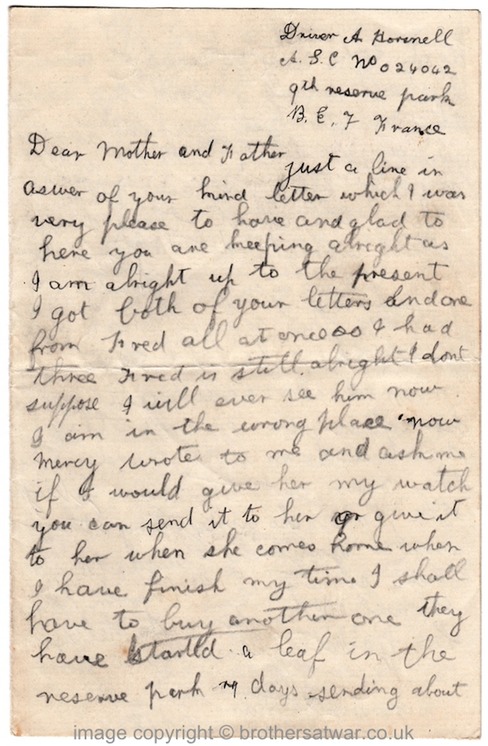 Driver A Horsnell
A.S.C No 024042
9th reserve park
B. E. F France
Dear Mother and Father
just a line in
aswer of your kind letter which I was
very please to have and glad to
here you are keeping alright as
I am alright up to the present
I got both of your letters and one
from Fred all at once so I had
three Fred is still alright I dont
suppose I will ever see him now
I aim in the wrong place now
Mercy wrote to me and ask me
if I would give her my watch
you can send it to her or give it
to her when she comes home when
I have finish my time I shall
have to buy another one they
have started a leaf in the
reserve park days sending about
image copyright © brothersatwar.co.uk